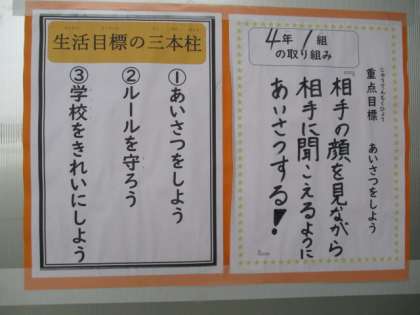 生活目標の三本柱
①あいさつをしよう
②ルールを守ろう
③学校をきれいにしよう
4年1組
の取り組み
重点目標 あいさつをしよう
じゅうてんもくひょう
相手の顔を見ながら
相手に聞こえるように
あいさつする!